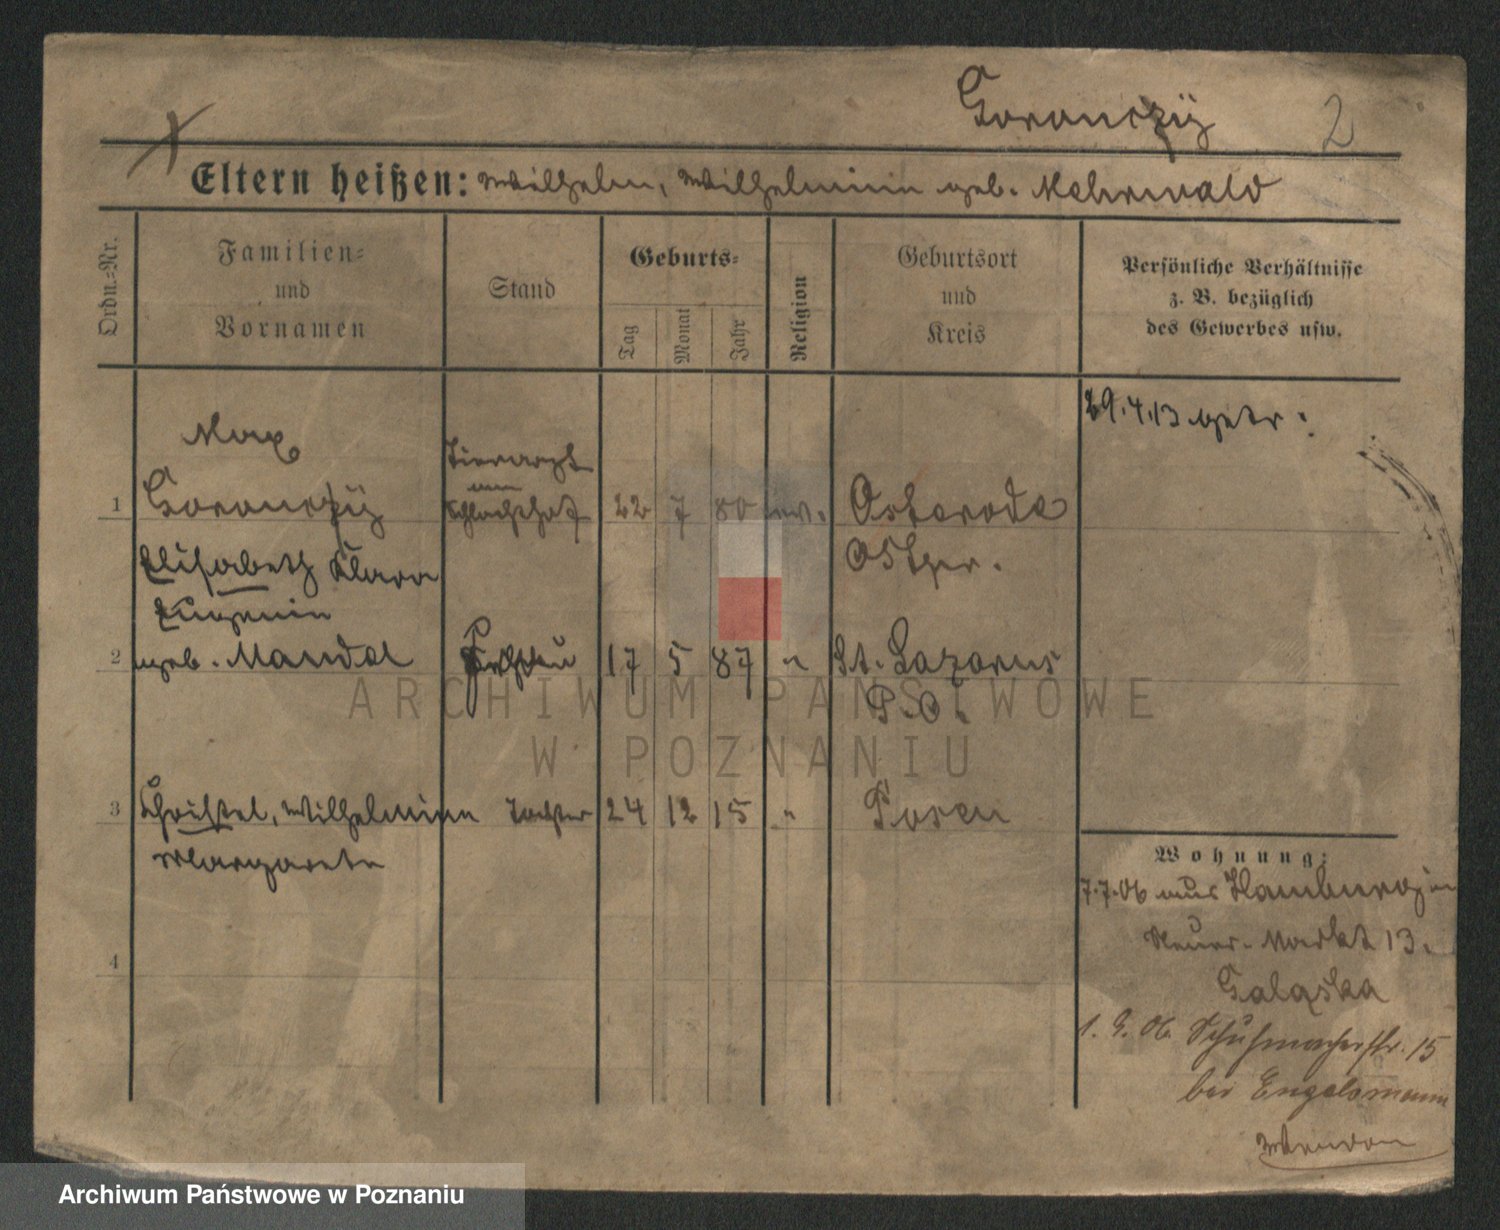 Goronczÿ 2
Eltern heißen: Wilhelm, Wilhelmine geb. Mehrwald
Ordn.-Nr.
Familien-
und
Vornamen
Stand
Geburts-
Tag
Monat
Jahr
Religion
Geburtsort
und
Kreis
Persönliche Verhältnisse
z. B. bezüglich
des Gewerbes usw.
29.4.13 getr.
Max
Tierarzt
am
1 Goronczÿ Schlachthof 22 7 80 ev. Osterode
Ostpr.
Elisabeth Klara
Eugenie
2 geb. Mandel Ehefrau 17 5 87 " St. Lazarus
P. O.
3 Christel, Wilhelmine Tochter 24 12 15 " Posen
Margarete
4
Wohnung:
7.7.06 aus Hamburg in
Neuer-Markt 13.
Galaska
1. 9. 06 Schuhmacherstr. 15
bei Engelsmann
ARCHIWUM PAŃSTWOWE
W POZNANIU
Archiwum Państwowe w Poznaniu